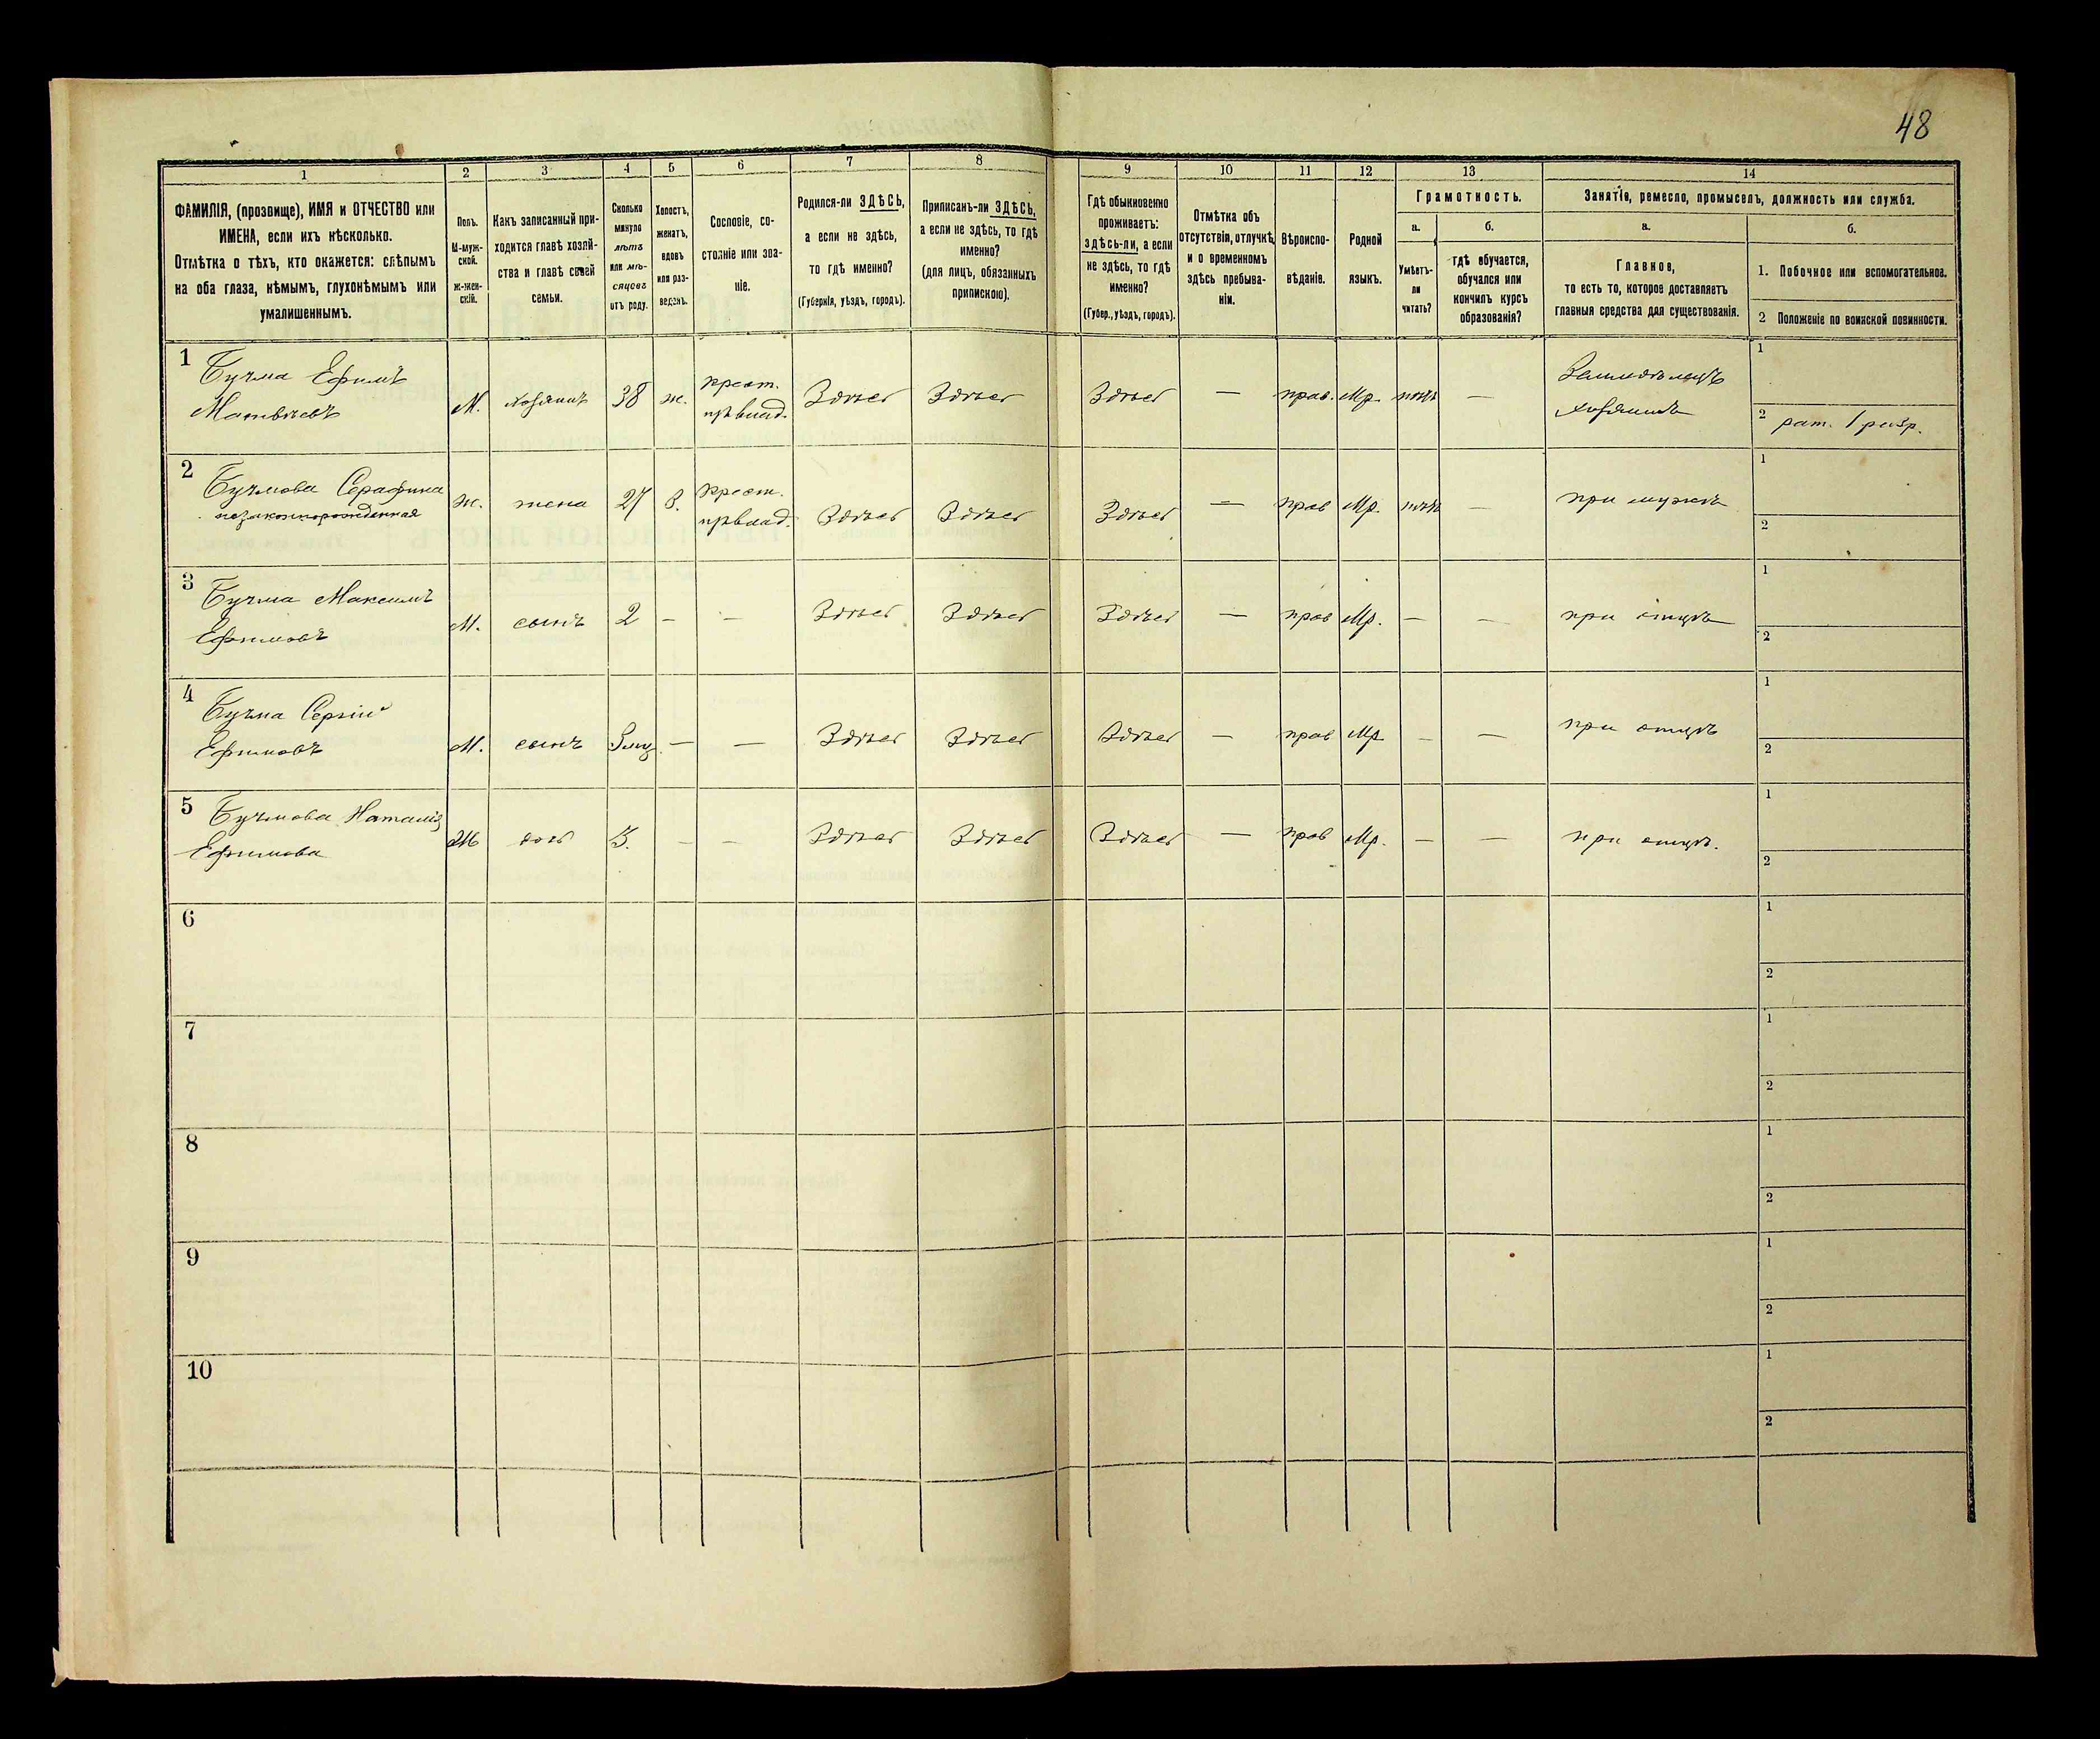 48
1 2 3 4 5 6 7 8 9 10 11 12 13 14
ФАМИЛІЯ, (прозвище), ИМЯ и ОТЧЕСТВО или
ИМЕНА, если ихъ нѣсколько.
Отмѣтка о тѣхъ, кто окажется: слѣпымъ
на оба глаза, нѣмымъ, глухонѣмымъ или
умалишеннымъ.
Полъ.
М-муж-
ской.
ж-жен-
скій.
Какъ записанный при-
ходится главѣ хозяй-
ства и главѣ своей
семьи.
Сколько
минуло
лѣтъ
или мѣ-
сяцовъ
отъ роду.
Холостъ,
женатъ,
вдовъ
или раз-
веденъ.
Сословіе, со-
стояніе или зва-
ніе.
Родился-ли ЗДѢСЬ,
а если не здѣсь,
то гдѣ именно?
(Губернія, уѣздъ, городъ).
Приписанъ-ли ЗДѢСЬ,
а если не здѣсь, то гдѣ
именно?
(для лицъ, обязанныхъ
припискою).
Гдѣ обыкновенно
проживаетъ:
здѣсь-ли, а если
не здѣсь, то гдѣ
именно?
(Губер., уѣздъ, городъ).
Отмѣтка объ
отсутствіи, отлучкѣ
и о временномъ
здѣсь пребыва-
ніи.
Вѣроиспо-
вѣданіе.
Родной
языкъ.
Грамотность.
а.
Умѣетъ-
ли
читать?
б.
гдѣ обучается,
обучался или
кончилъ курсъ
образованія?
Занятіе, ремесло, промыселъ, должность или служба.
а.
Главное,
то есть то, которое доставляетъ
главныя средства для существованія.
б.
1. Побочное или вспомогательное.
2 Положеніе по воинской повинности.
1 Бучма Ефимъ
Матвѣевъ
М. хозяинъ 38 ж. крест. Здѣсь Здѣсь Здѣсь — прав. Мр. нѣтъ —
Земледѣлецъ
хозяинъ
1
2 рат. 1 разр.
2 Бучмова Серафима
незаконнорожденная
ж. жена 27 З. крест. Здѣсь Здѣсь Здѣсь — прав Мр. нѣтъ — при мужѣ
1
2
3 Бучма Максимъ
Ефимовъ
М. сынъ 2 — — Здѣсь Здѣсь Здѣсь — прав Мр. — — при отцѣ
1
2
4 Бучма Сергій
Ефимовъ
М. сынъ — — Здѣсь Здѣсь Здѣсь — прав Мр — — при отцѣ
1
2
5 Бучмова Наталія
Ефимова
Ж дочь — — Здѣсь Здѣсь Здѣсь — прав Мр. — — при отцѣ.
1
2
6
1
2
7
1
2
8
1
2
9
1
2
10
1
2